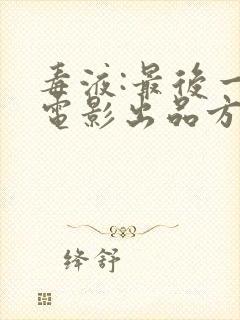 毒液:最後一
電影出品方
绛舒